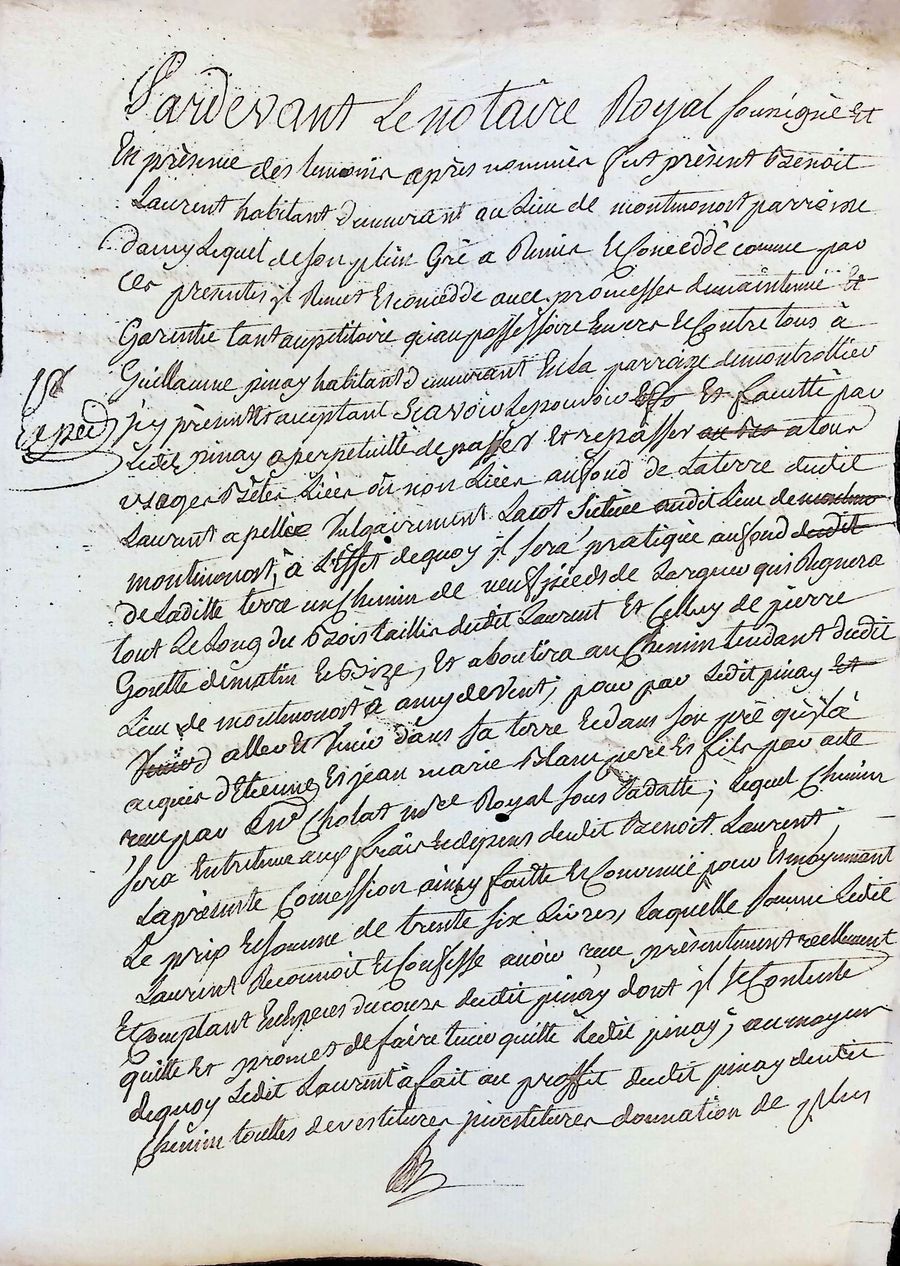 Pardevant Le notaire Royal sousigné Et
En présence des temoins après nommés fut présent Benoit
Laurent habitant demeurant au Lieu de montmonost parroisse
damy Lequel de son plein Gré a Remis Et Conceddé comme par
Ces presentes jl Remet Et conceddè avec promesses de maintenüe Et
Garentie tant au petitoire qu'au possessoire Envers Et Contre tous à
Guillaume pinay habitant demeurant En La parroize de montrottier
jcy présent Et acceptant Scavoir Le pouvoir Et Et faculté par
1re
Exped
Ledit pinay a perpetuitté de passer Et repasser a tous
usages Bêtes Liées où non Liées au fond de La terre dudit
Laurent apellée Vulgairement Lacot Scituée audit Lieu de
montmonost, à L'Effet dequoy jl sera pratiqué au fond
de Laditte terre un Chemin de neuf pieds de Largeur qui Regnera
tout Le Long du Bois taillis dudit Laurent Et Celluy de pierre
Goutte de matin Et Bize, Et aboutira au Chemin tendant dudit
Lieu de montmonost à amy de vent, pour par Ledit pinay Et
aller Et Venir dans sa terre Et dans son pré qu'jl à
acquis d'Etienne Et jean marie Blanc pere Et fils par acte
reçu par Chotat nore Royal sous sa datte; Lequel Chemin
sera Entretenu aux frais Et depens dudit Benoit Laurent,
La présente Concession ainsy faitte Et Convenüe pour Et moyennant
Le prix Et somme de trente six Livres, Laquelle somme Ledit
Laurent Reconnoit Et Confesse avoir reçue présentement réellement
Et Comptant En Espèces du cours dudit pinay dont jl se Contente
quitte Et promet de faire tenir quitte Ledit pinay; au moyen
dequoy Ledit Laurent à fait au proffit dudit pinay dudit
Chemin touttes devestitures jnvestitures donnation de plus